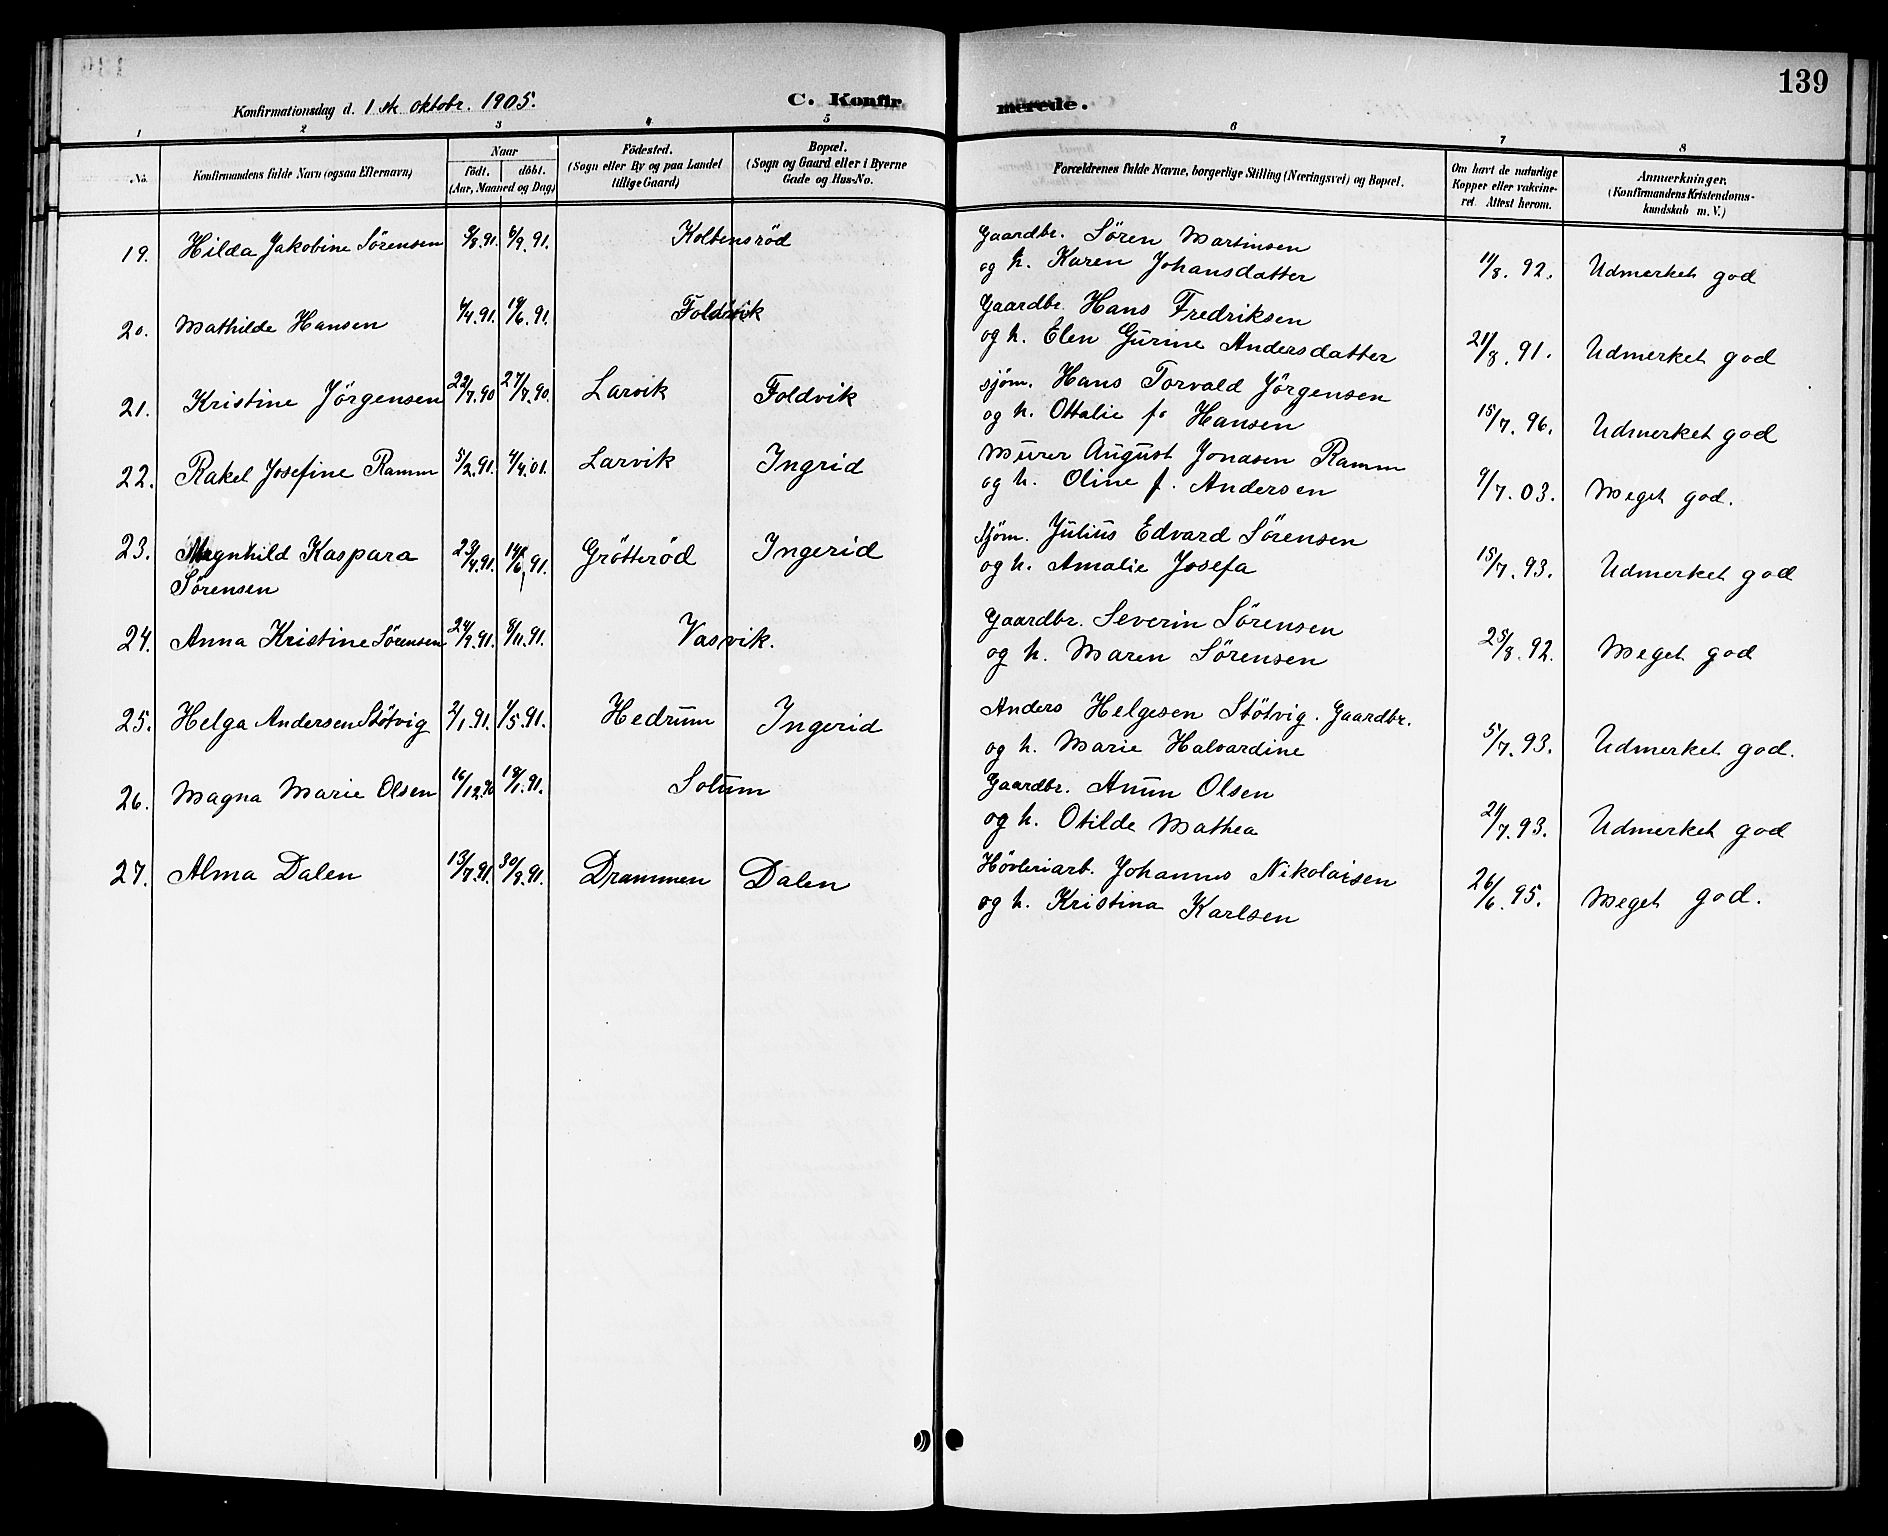 139
Konfirmationsdag d. 1ste oktobr. 1905. C. Konfirmerede.
1 2 3 4 5 6 7 8
No. Konfirmandens fulde Navn (ogsaa Efternavn) Naar födt. döbt. (Aar, Maaned og Dag) Födested. (Sogn eller By og paa Landet tillige Gaard) Bopæl. (Sogn og Gaard eller i Byerne Gade og Hus-No. Forældrenes fulde Navne, borgerlige Stilling (Næringsvei) og Bopæl. Om havt de naturlige Kopper eller vakcineret. Attest herom. Anmærkninger. (Konfirmandens Kristendomskundskab m. V.)
19. Hilda Jakobine Sörensen 9/8.91. 6/9.91. Kolbensröd Gaardbr. Sören Martinsen
og h. Karen Johansdatter 11/8.92. Udmerket god
20. Mathilde Hansen 4/4.91. 14/6.91. Foldvik Gaardbr. Hans Fredriksen
og h. Elen Gurine Andersdatter 21/8.91. Udmerket god
21. Kristine Jörgensen 22/7.90 27/7.90. Larvik Foldvik sjöm. Hans Torvald Jörgensen
og h. Ottalie f. Hansen 15/7.96. Udmerket god
22. Rakel Josefine Ramm 5/2.91. 4/4.01. Larvik Ingrid Murer August Jonasen Ramm
og h. Oline f. Andersen 9/7.03. Meget god.
23. Magnhild Kaspara 23/4.91. 14/6.91. Grötteröd Ingerid Sjöm. Julius Edvard Sörensen
Sörensen og h. Amalie Josefa 15/7.93. Udmerket god
24. Anna Kristine Sörensen 24/9.91. 8/11.91. Vasvik. Gaardbr. Severin Sörensen
og h. Maren Sörensen 25/8.92. Meget god
25. Helga Andersen Stötvig 2/1.91. 1/5.91. Hedrum Ingerid Anders Helgesen Stötvig. Gaardbr.
og h. Marie Halvardine 5/7.93. Udmerket god.
26. Magna Marie Olsen 16/12.90 18/1.91. Solum Gaardbr. Anun Olsen
og h. Otilde Mathea 21/7.93. Udmerket god
27. Alma Dalen 13/7.91. 30/8.91. Drammen Dalen Hövleriarb. Johannes Nikolaisen
og h. Kristina Karlsen 26/6.95. Meget god.